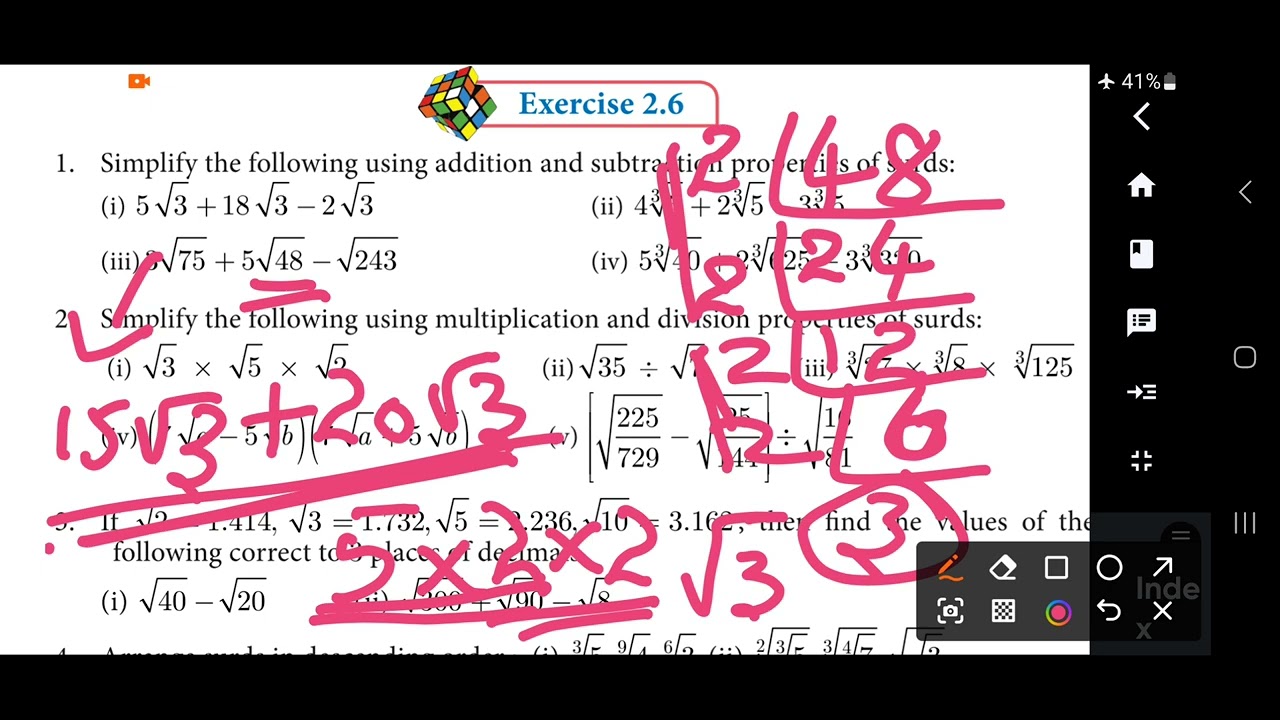 41%
Exercise 2.6
1. Simplify the following using addition and subtraction properties of surds:
(i) 5√3 + 18√3 − 2√3 (ii) 4∛5 + 2∛5 − 3∛5
(iii) 3√75 + 5√48 − √243 (iv) 5∛40 + 2∛625 − 3∛320
2. Simplify the following using multiplication and division properties of surds:
(i) √3 × √5 × √2 (ii) √35 ÷ √7 (iii) ∛27 × ∛8 × ∛125
(iv) (7√a − 5√b)(7√a + 5√b) (v) [√225/729 − √25/144] ÷ √16/81
3. If √2 = 1.414, √3 = 1.732, √5 = 2.236, √10 = 3.162, then find the values of the
following correct to 3 places of decimals.
(i) √40 − √20 (ii) √300 + √90 − √8
4. Arrange surds in descending order (i) ∛5, ⁹√4, ⁶√3 (ii) ²√∛5, ∛⁴√7, √√3
2 48
2 24
2 12
2 6
3
15√3 + 20√3
5 × 2 × 2 √3
Inde
x